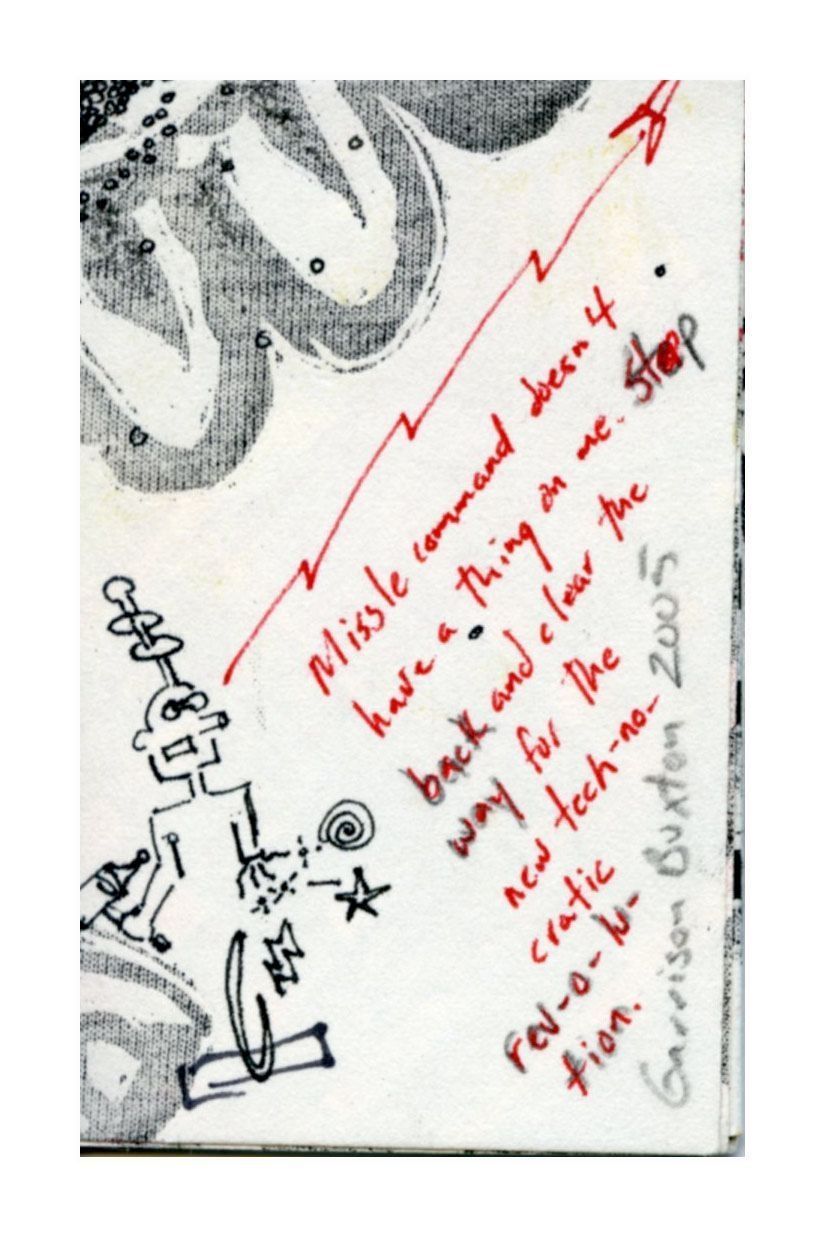 Missle command doesn't
have a thing on me. Step
back and clear the
way for the
new tech-no-
cratic
rev-o-lu-
tion.
Garrison Buxton 2005